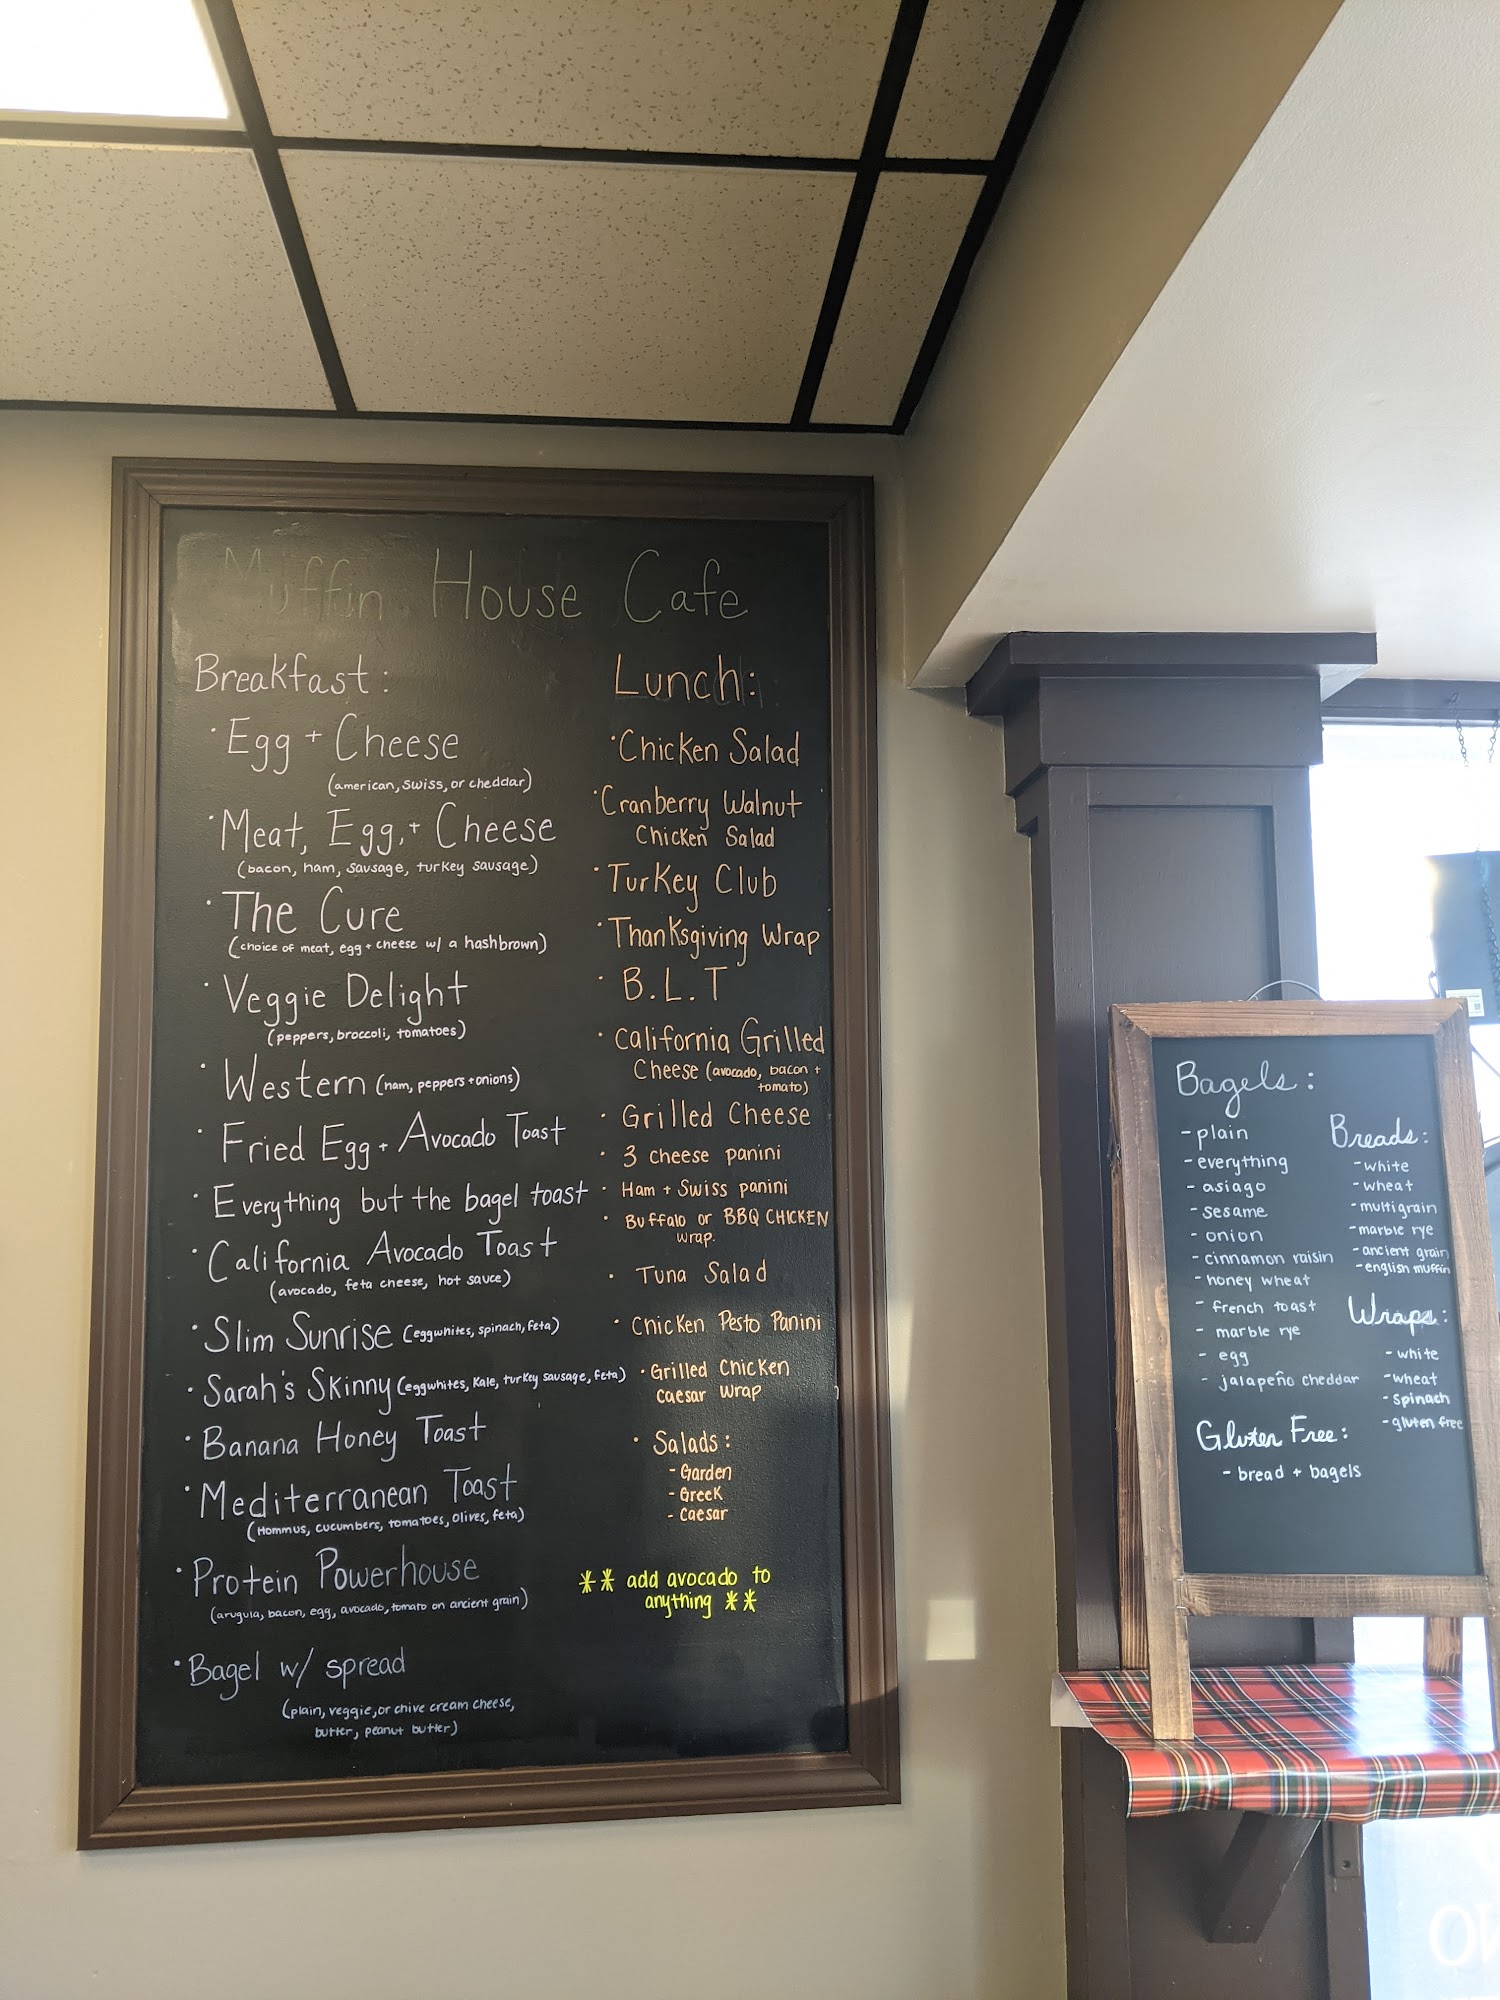 Muffin House Cafe
Breakfast:
· Egg + Cheese
(american, swiss, or cheddar)
· Meat, Egg, + Cheese
(bacon, ham, sausage, turkey sausage)
· The Cure
(choice of meat, egg + cheese w/ a hashbrown)
· Veggie Delight
(peppers, broccoli, tomatoes)
· Western (ham, peppers + onions)
· Fried Egg + Avocado Toast
· Everything but the bagel toast
· California Avocado Toast
(avocado, feta cheese, hot sauce)
· Slim Sunrise (eggwhites, spinach, feta)
· Sarah's Skinny (eggwhites, Kale, turkey sausage, feta)
· Banana Honey Toast
· Mediterranean Toast
(Hommus, cucumbers, tomatoes, olives, feta)
· Protein Powerhouse
(arugula, bacon, egg, avocado, tomato on ancient grain)
· Bagel w/ spread
(plain, veggie, or chive cream cheese,
butter, peanut butter)
Lunch:
· Chicken Salad
· Cranberry Walnut
Chicken Salad
· Turkey Club
· Thanksgiving Wrap
· B.L.T
· California Grilled
Cheese (avocado, bacon +
tomato)
· Grilled Cheese
· 3 cheese panini
· Ham + Swiss panini
· Buffalo or BBQ CHICKEN
wrap.
· Tuna Salad
· Chicken Pesto Panini
· Grilled Chicken
Caesar wrap
· Salads:
- Garden
- Greek
- Caesar
** add avocado to
anything **
Bagels:
- plain
- everything
- asiago
- sesame
- onion
- cinnamon raisin
- honey wheat
- french toast
- marble rye
- egg
- jalapeño cheddar
Gluten Free:
- bread + bagels
Breads:
- white
- wheat
- multigrain
- marble rye
- ancient grain
- english muffin
Wraps:
- white
- wheat
- spinach
- gluten free